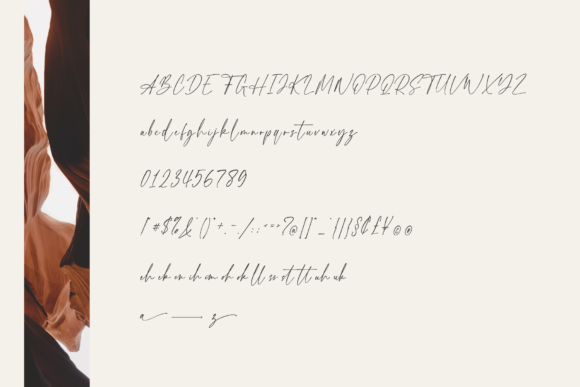 ABCDEFGHIJKLMNOPQRSTUVWXYZ
abcdefghijklmnopqrstuvwxyz
0123456789
! #$%&'()*+,-./:;<=>?@[]^_`{|}§₡£¥©®
eh ek en ch cm oh ok ll ss st tt uh uk
a z